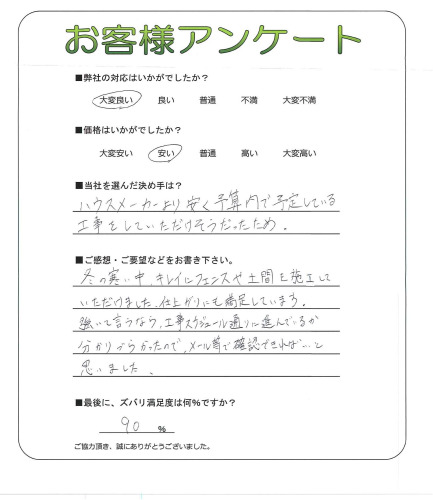 お客様アンケート
■弊社の対応はいかがでしたか?
大変良い 良い 普通 不満 大変不満
■価格はいかがでしたか?
大変安い 安い 普通 高い 大変高い
■当社を選んだ決め手は?
ハウスメーカーより安く予算内で予定している
工事をしていただけそうだったため。
■ご感想・ご要望などをお書き下さい。
冬の寒い中、キレイにフェンスや土間を施工して
いただけました。仕上がりにも満足しています。
強いて言うなら、工事スケジュール通りに進んでいるか
分かりづらかったので、メール等で確認できれば…と
思いました。
■最後に、ズバリ満足度は何%ですか?
90 %
ご協力頂き、誠にありがとうございました。